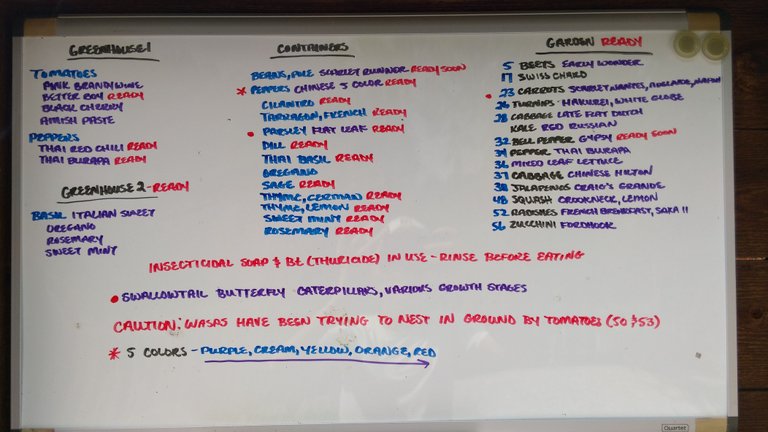 GREENHOUSE 1
TOMATOES
PINK BRANDYWINE
BETTER BOY READY
BLACK CHERRY
AMISH PASTE
PEPPERS
THAI RED CHILI READY
THAI BURAPA READY
GREENHOUSE 2-READY
BASIL ITALIAN SWEET
OREGANO
ROSEMARY
SWEET MINT
CONTAINERS
BEANS, POLE SCARLET RUNNER READY SOON
* PEPPERS CHINESE 5 COLOR READY
CILANTRO READY
TARRAGON, FRENCH READY
• PARSLEY FLAT LEAF READY
DILL READY
THAI BASIL READY
OREGANO
SAGE READY
THYME, GERMAN READY
THYME, LEMON READY
SWEET MINT READY
ROSEMARY READY
GARDEN READY
5 BEETS EARLY WONDER
17 SWISS CHARD
• 23 CARROTS SCARLET NANTES, ADELAIDE,
26 TURNIPS HAKUREI, WHITE GLOBE
28 CABBAGE LATE FLAT DUTCH
KALE RED RUSSIAN
32 BELL PEPPER GYPSY READY SOON
34 PEPPER THAI BURAPA
36 MIXED LEAF LETTUCE
37 CABBAGE CHINESE HILTON
38 JALAPENOS CRAIG'S GRANDE
48 SQUASH CROOKNECK, LEMON
52 RADISHES FRENCH BREAKFAST, SORA II
56 ZUCCHINI FORDHOOK
INSECTICIDAL SOAP & Bt (THURICIDE) IN USE - RINSE BEFORE EATING
• SWALLOWTAIL BUTTERFLY CATERPILLARS, VARIOUS GROWTH STAGES
CAUTION: WASPS HAVE BEEN TRYING TO NEST IN GROUND BY TOMATOES (50 & 53)
* 5 COLORS - PURPLE, CREAM, YELLOW, ORANGE, RED
Quartet